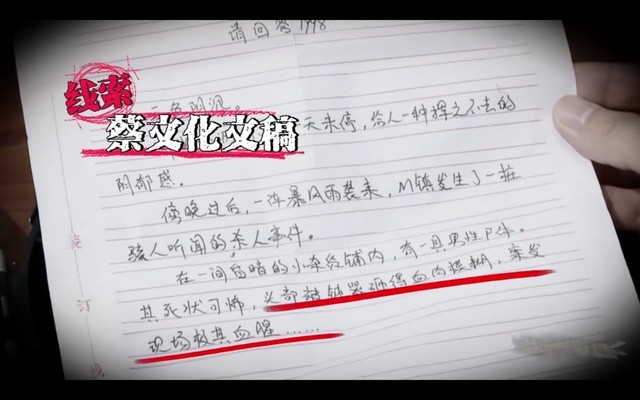 请回答1998
色阴沉。
线索
天未停，给人一种挥之不去的
蔡文化文稿
阴郁感。
傍晚过后，一阵暴风雨袭来，M镇发生了一桩
骇人听闻的杀人事件。
在一间昏暗的小杂货铺内，有一具男性尸体。
其死状可怖，头部被钝器砸得血肉模糊，案发
现场极其血腥……
装
订
线